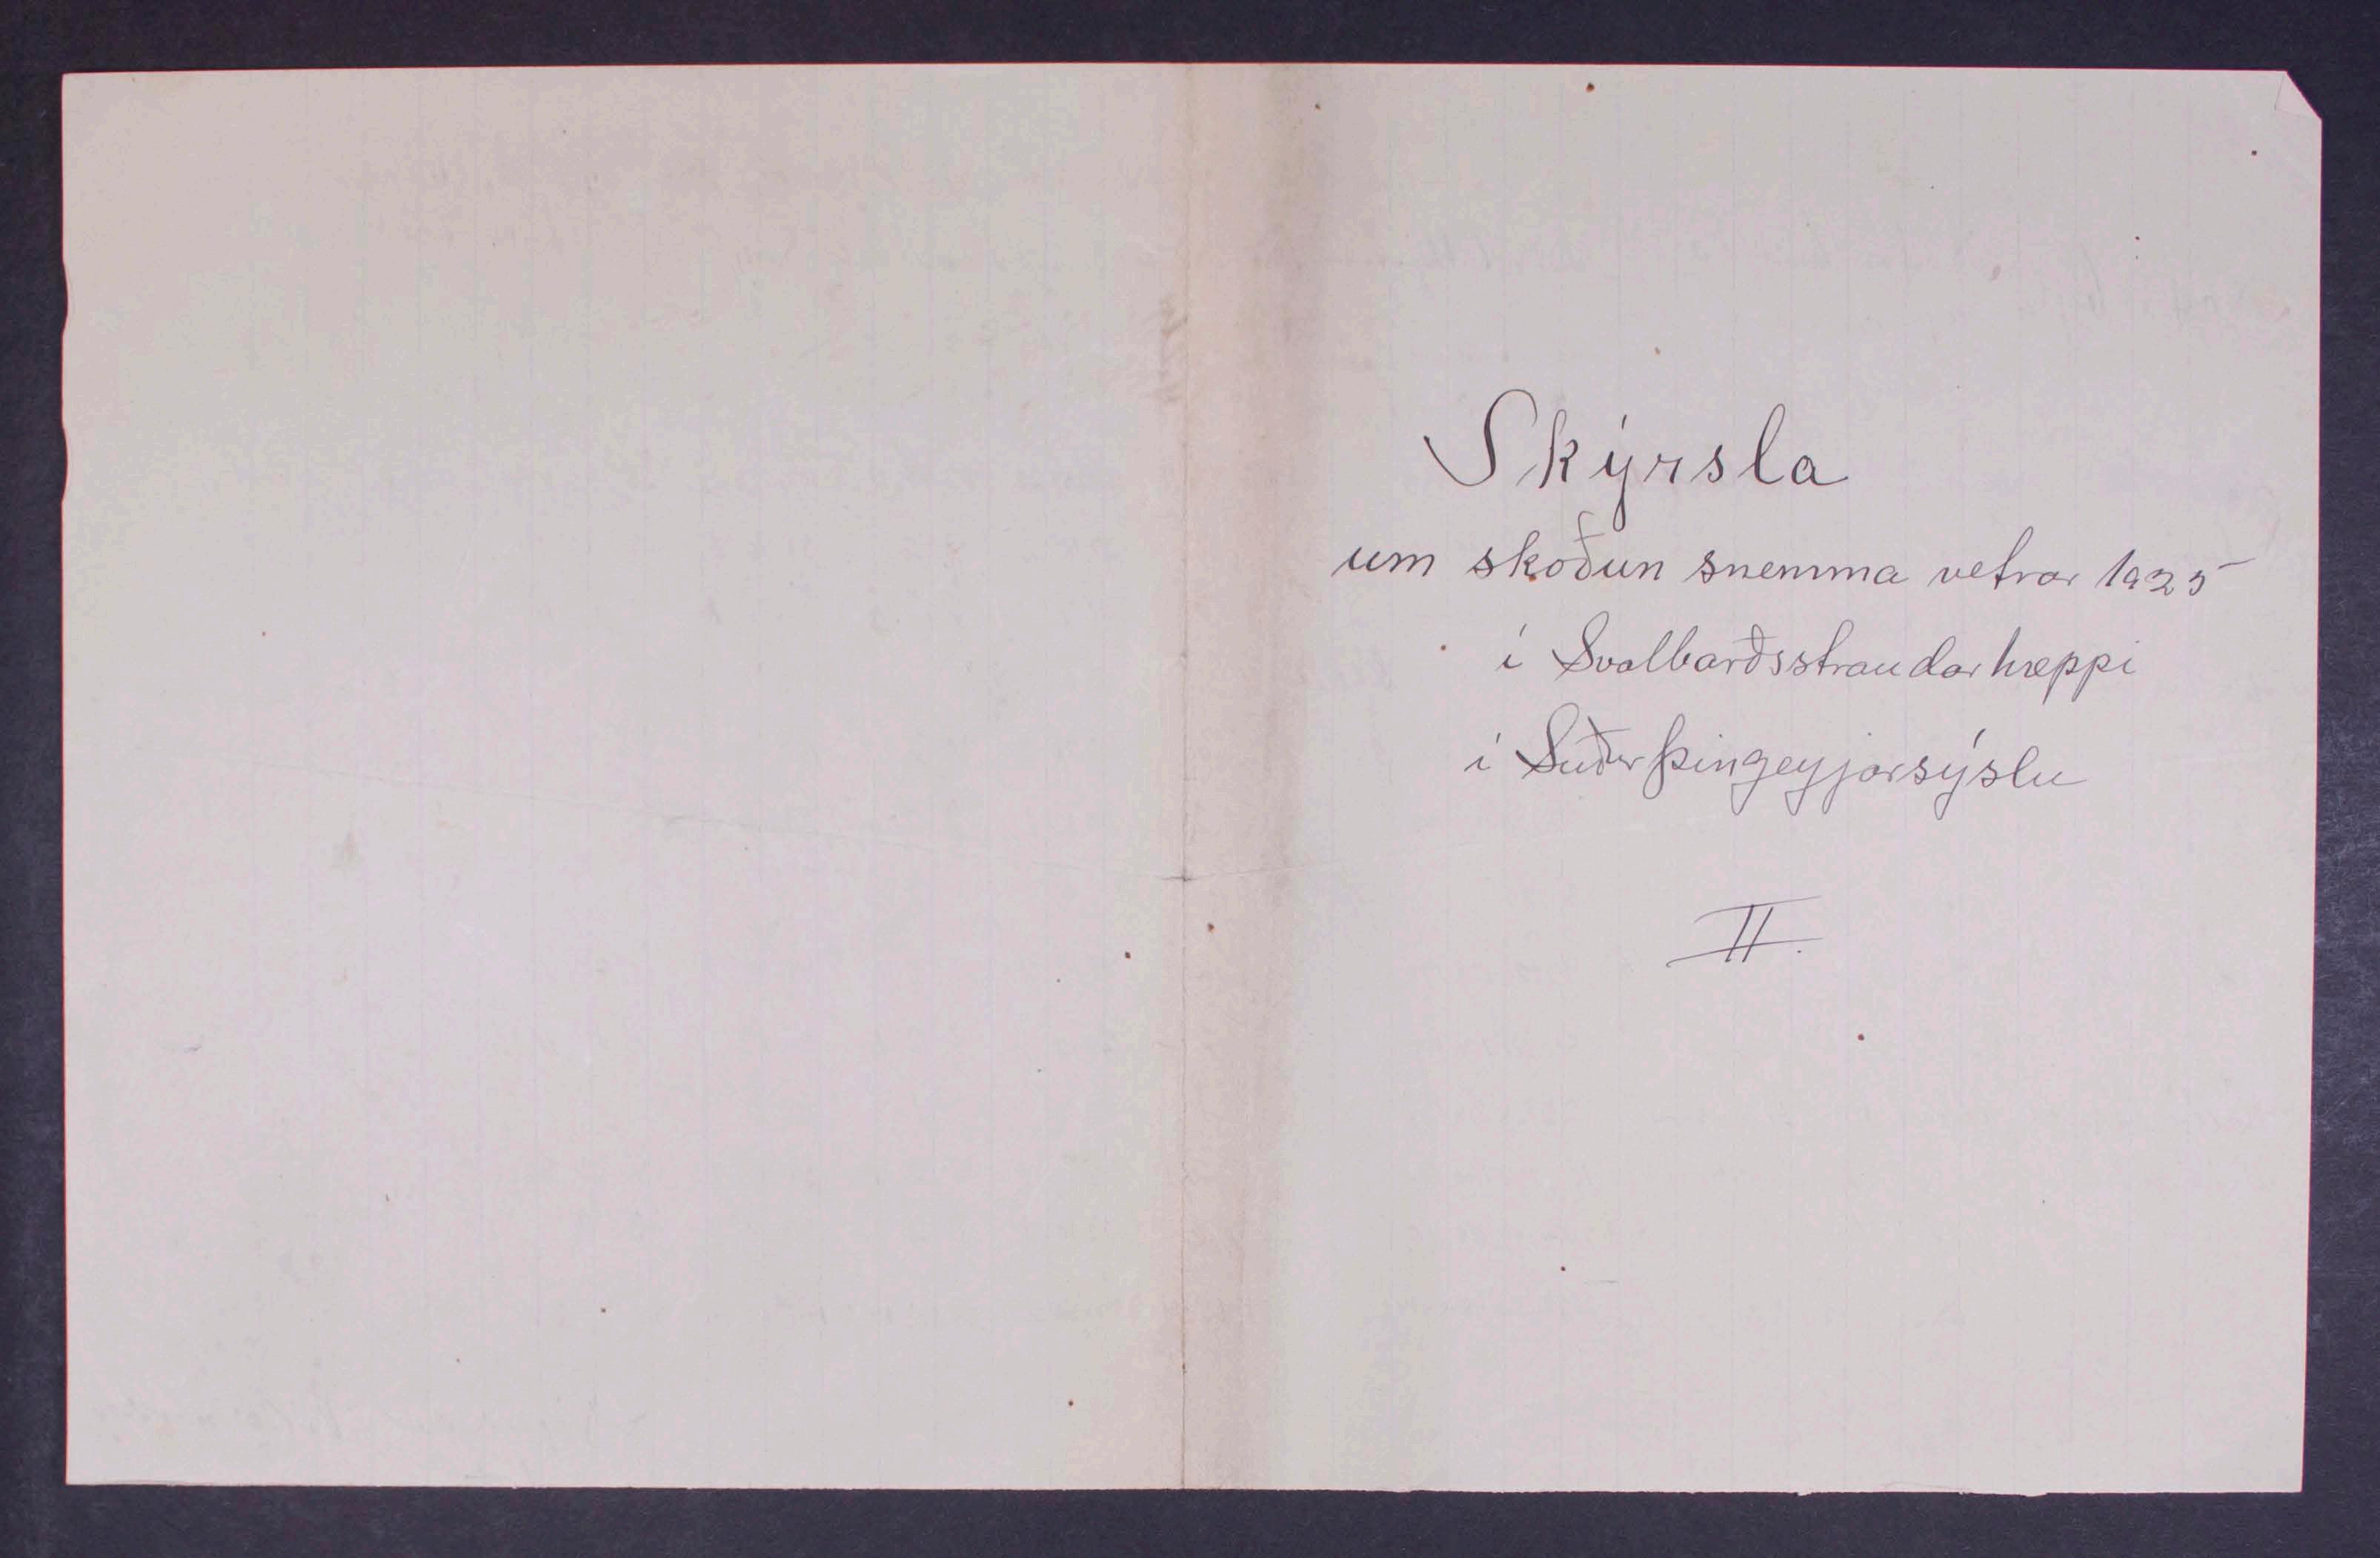 Skýrsla
um skoðun snemma vetrar 1925
í Svalbarðsstrandarhreppi
í Suðurþingeyjarsýslu
II.